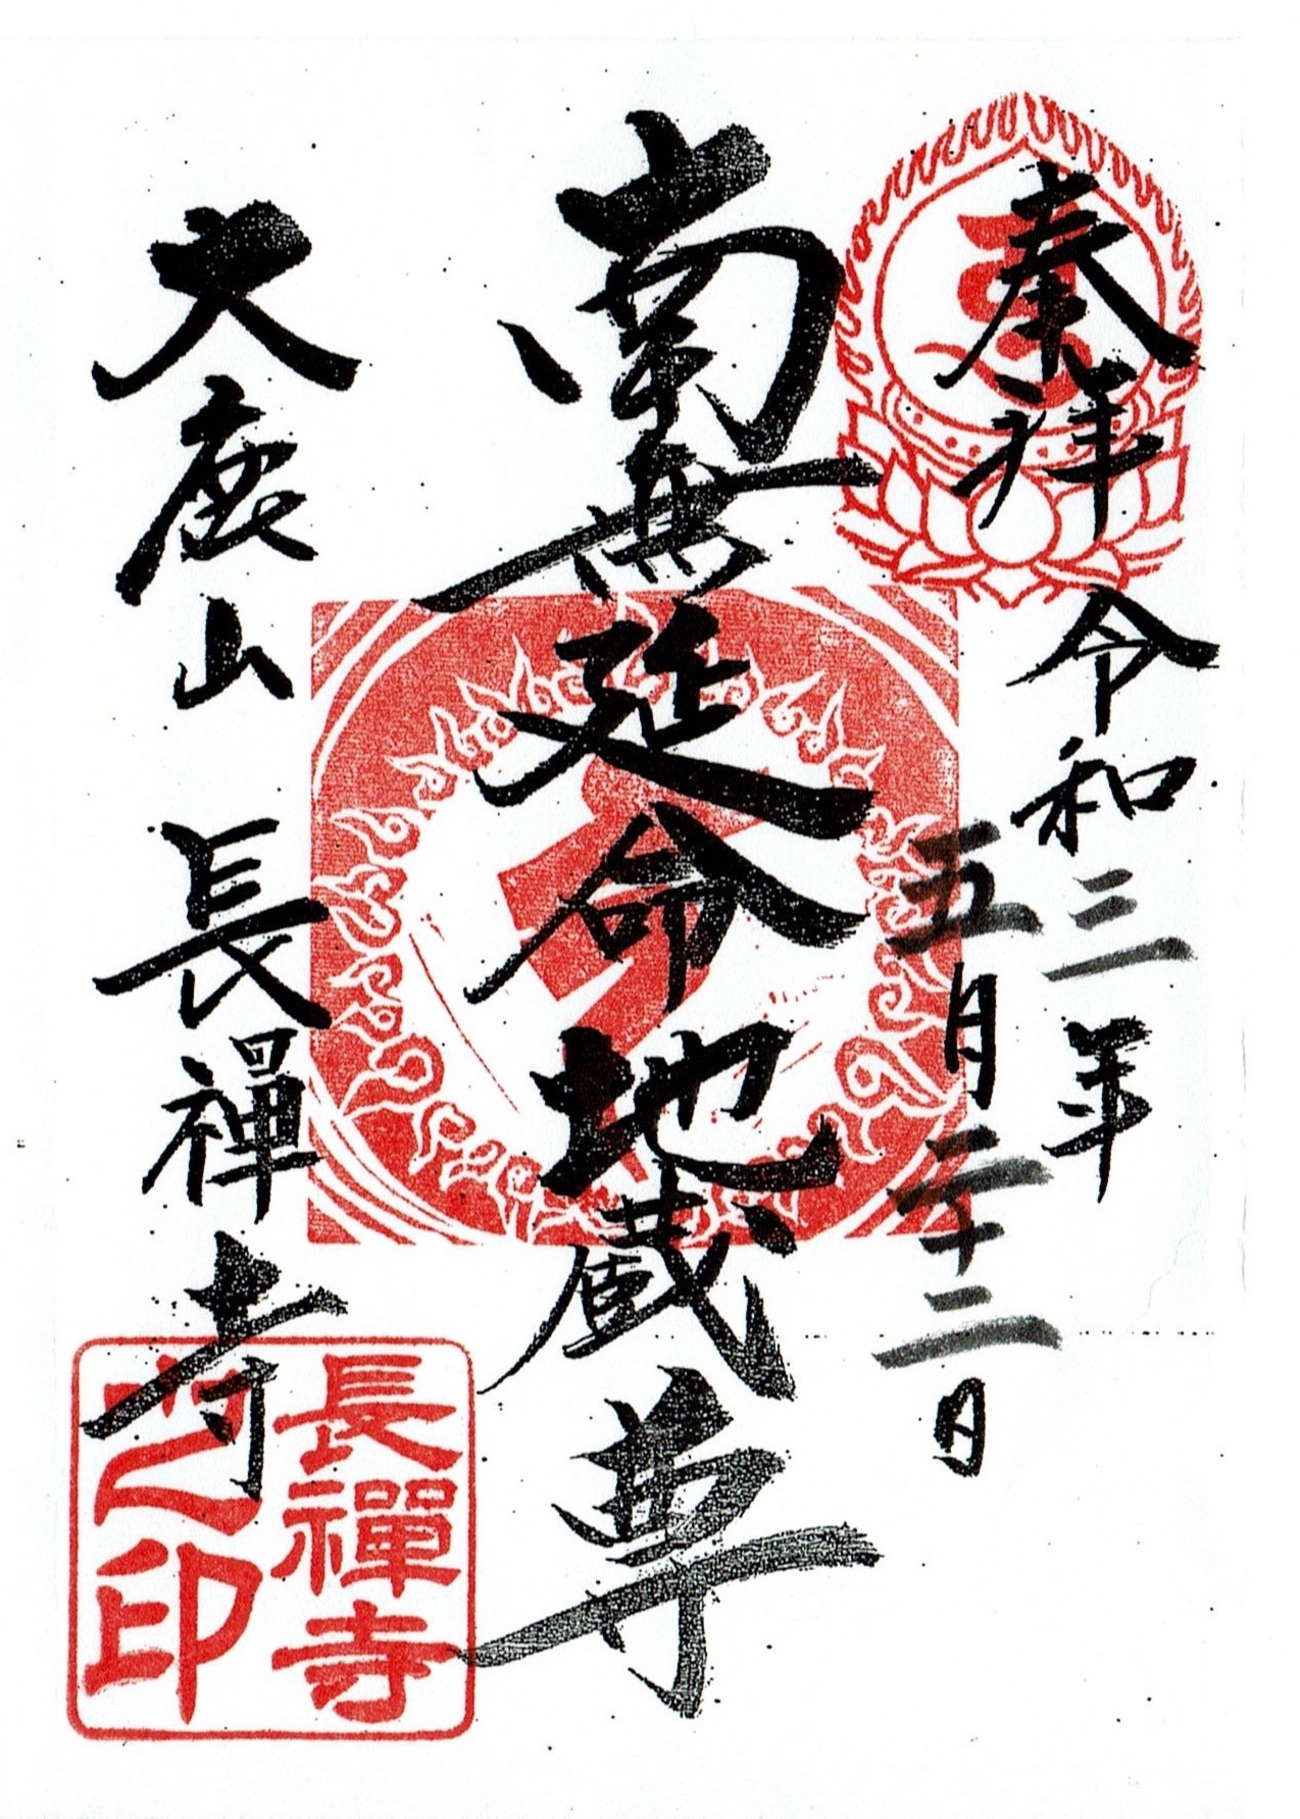 奉拝
令和三年
五月二十二日
南無延命地蔵尊
大鹿山 長禪寺
長禪寺
之印